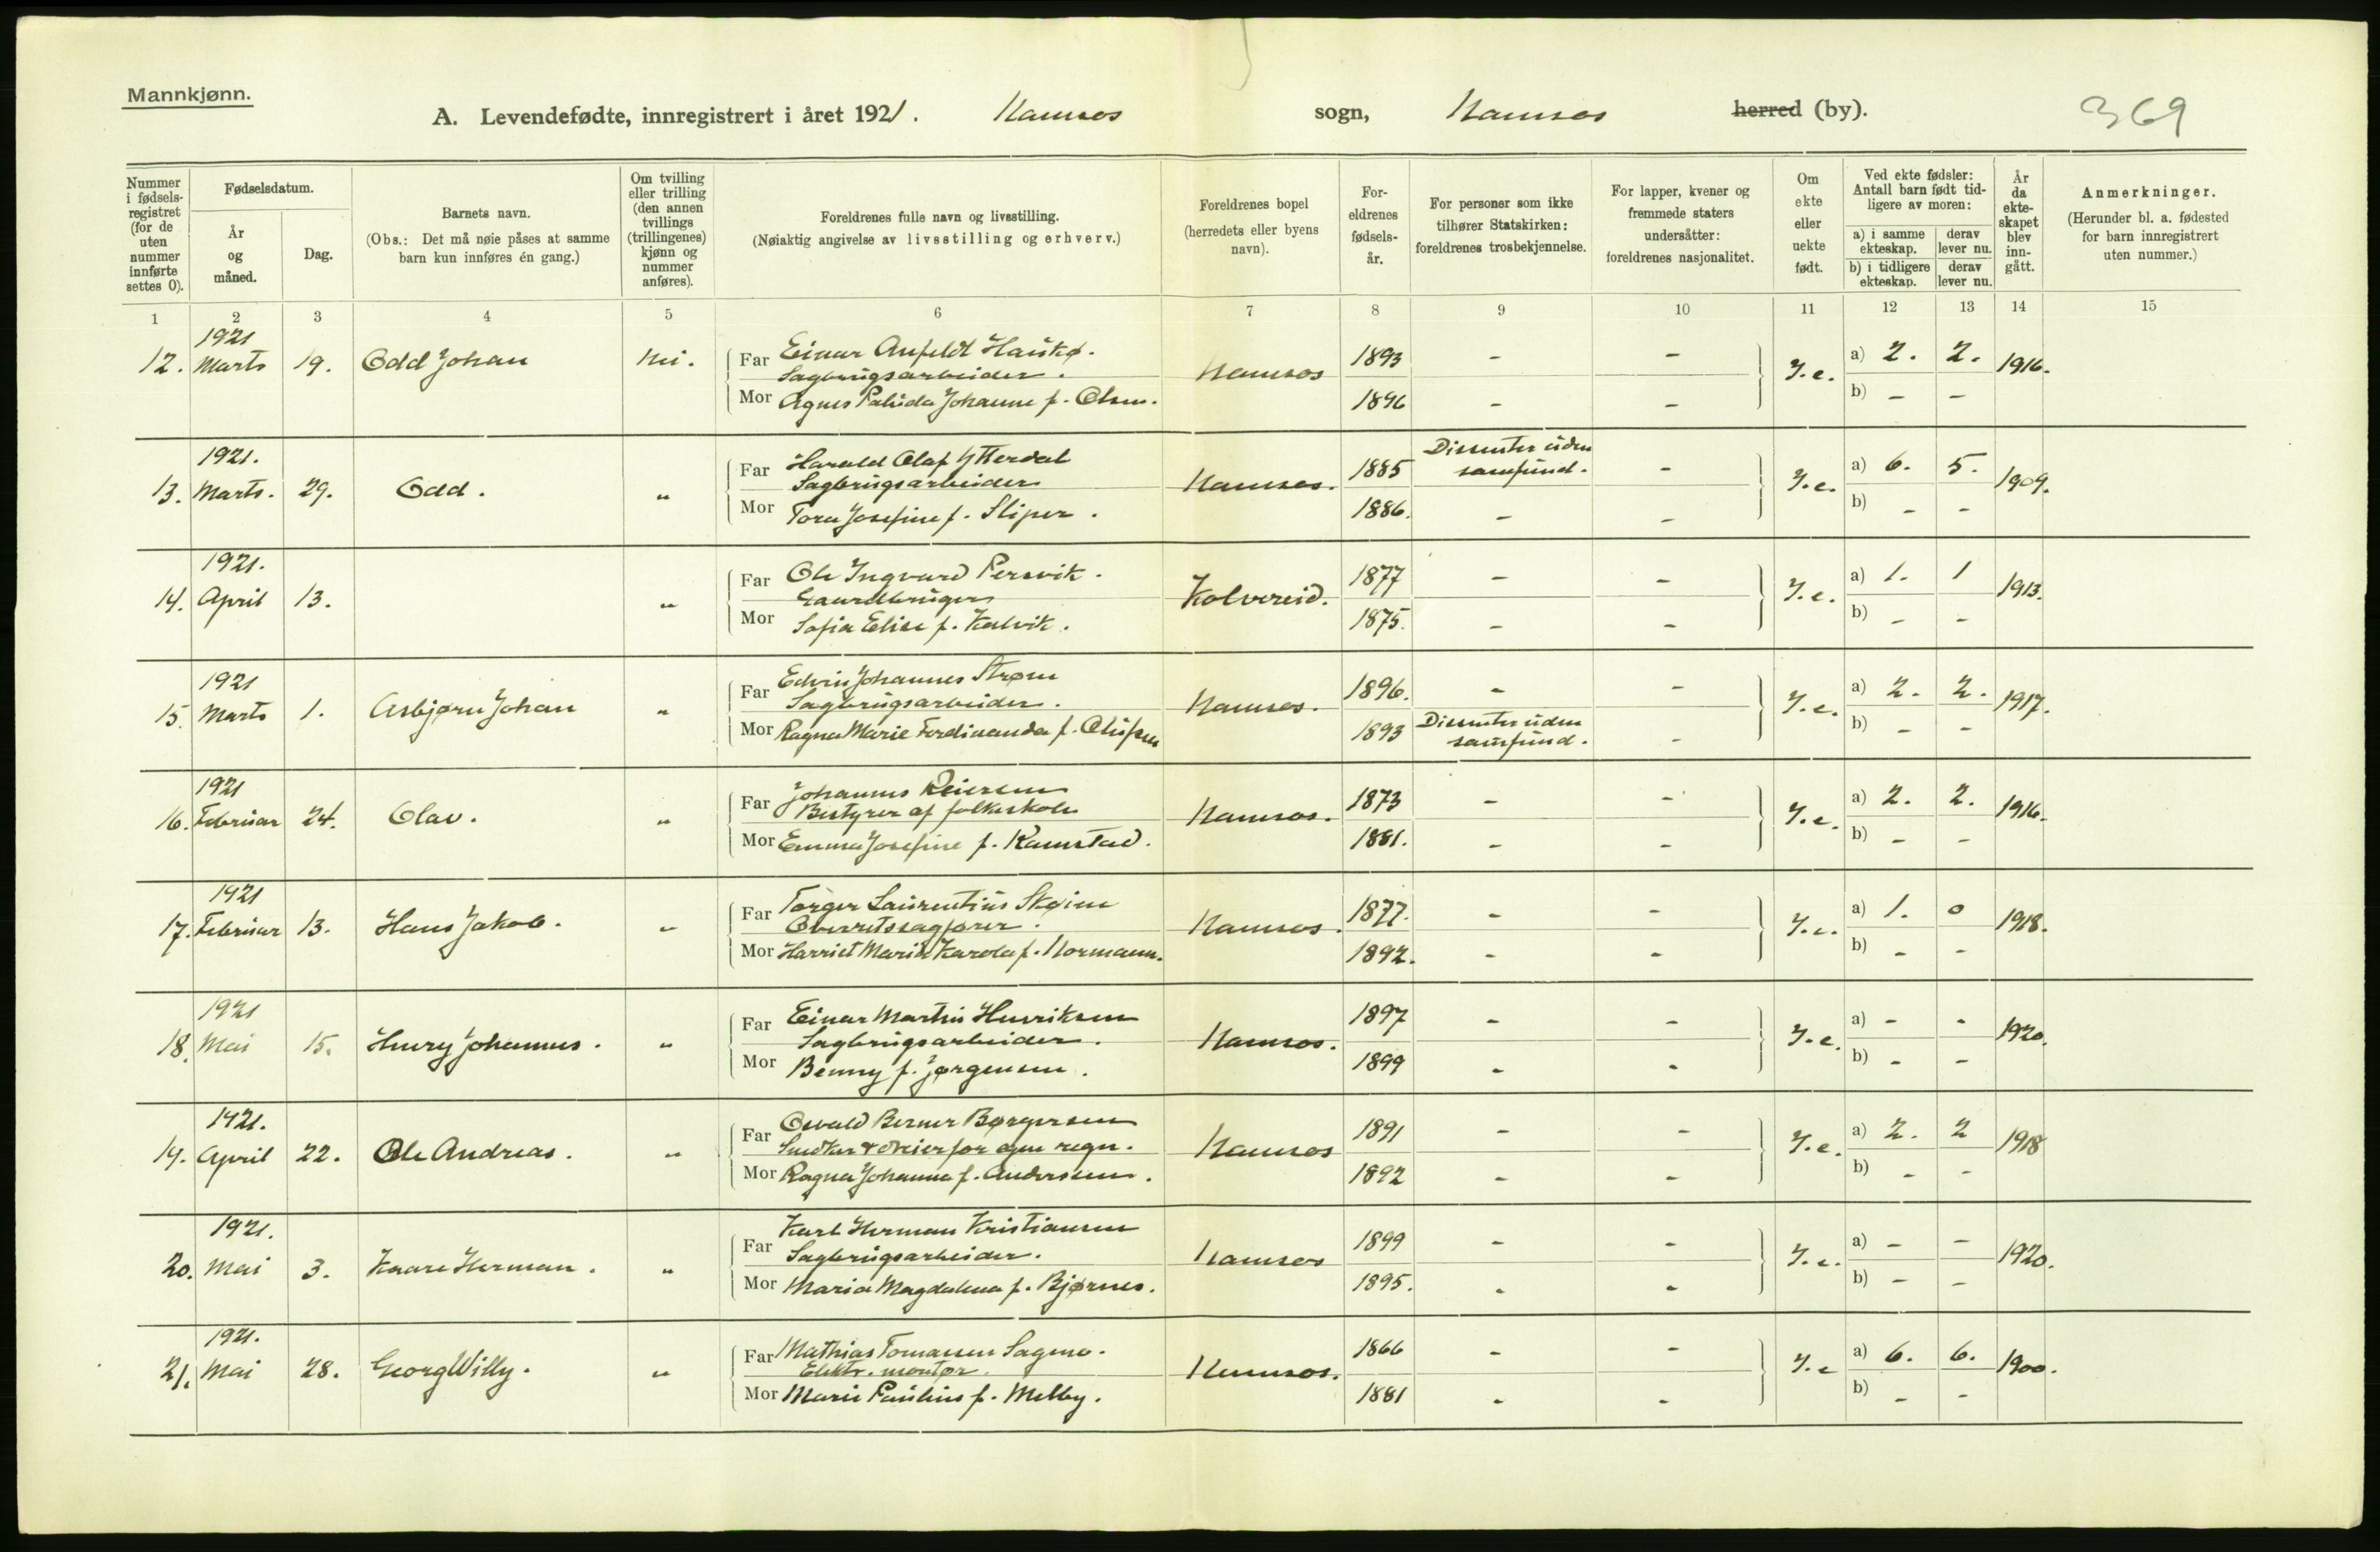 Mannkjønn.
A. Levendefødte, innregistrert i året 1921. Namsos sogn, Namsos herred (by). 369
Nummer i fødselsregistret (for de uten nummer innførte settes 0).
Fødselsdatum.
År og måned.
Dag.
Barnets navn.
(Obs.: Det må nøie påses at samme barn kun innføres én gang.)
Om tvilling eller trilling (den annen tvillings (trillingenes) kjønn og nummer anføres).
Foreldrenes fulle navn og livsstilling.
(Nøiaktig angivelse av livsstilling og erhverv.)
Foreldrenes bopel (herredets eller byens navn).
Foreldrenes fødselsår.
For personer som ikke tilhører Statskirken: foreldrenes trosbekjennelse.
For lapper, kvener og fremmede staters undersåtter: foreldrenes nasjonalitet.
Om ekte eller uekte født.
Ved ekte fødsler: Antall barn født tidligere av moren:
a) i samme ekteskap. derav lever nu.
b) i tidligere ekteskap. derav lever nu.
År da ekteskapet blev inngått.
Anmerkninger.
(Herunder bl. a. fødested for barn innregistrert uten nummer.)
1 2 3 4 5 6 7 8 9 10 11 12 13 14 15
1921
12. Marts 19. Odd Johan Nei. Far Einar Anfeldt Hauskø. 1893 - -
Sagbrugsarbeider. Namsos J.e. a) 2. 2. 1916.
Mor Agnes Palida Johanne f. Olsen. 1896 - - b) - -
1921.
13. Marts. 29. Odd. " Far Harald Olaf Ytterdal 1885 Dissenter uden samfund. -
Sagbrugsarbeider Namsos. J.e. a) 6. 5. 1909.
Mor Tora Josefine f. Sliper. 1886. - - b) - -
1921.
14. April 13. " Far Ole Ingvard Persvik. 1877 - -
Gaardbruger Kolvereid. J.e. a) 1. 1 1913.
Mor Sofia Elise f. Kalvik. 1875. - - b) - -
1921
15. Marts 1. Asbjørn Johan " Far Edvin Johannes Strøm 1896. - -
Sagbrugsarbeider. Namsos. J.e. a) 2. 2. 1917.
Mor Ragna Marie Ferdinanda f. Olufsen 1893 Dissenter uden samfund. - b) - -
1921
16. Februar 24. Olav. " Far Johannes Reiersen 1873 - -
Bestyrer af folkeskole Namsos. J.e. a) 2. 2. 1916.
Mor Emma Josefine f. Ramstad. 1881. - - b) - -
1921
17. Februar 13. Hans Jakob. " Far Torger Laurentius Skøien 1877. - -
Overretssagfører. Namsos. J.e. a) 1. 0 1918.
Mor Harriet Marie Karola f. Normann. 1892. - - b) - -
1921
18. Mai 15. Henry Johannes. " Far Einar Martin Henriksen 1897 - -
Sagbrugsarbeider. Namsos. J.e. a) - - 1920.
Mor Benny f. Jørgensen. 1899 - - b) - -
1921.
19. April 22. Ole Andreas. " Far Osvald Berner Børgersen 1891 - -
Snedker & dreier for egen regn. Namsos J.e. a) 2. 2 1918
Mor Ragna Johanna f. Anderssen. 1892 - - b) - -
1921.
20. Mai 3. Kaare Herman. " Far Karl Herman Kristiansen 1899 - -
Sagbrugsarbeider. Namsos J.e. a) - - 1920.
Mor Maria Magdalena f. Bjørnes. 1895. - - b) - -
1921.
21. Mai 28. Georg Willy. " Far Mathias Tomassen Sagmo. 1866 - -
Elektr. montør. Namsos. J.e a) 6. 6. 1900.
Mor Marie Pauline f. Melby. 1881 - - b) - -